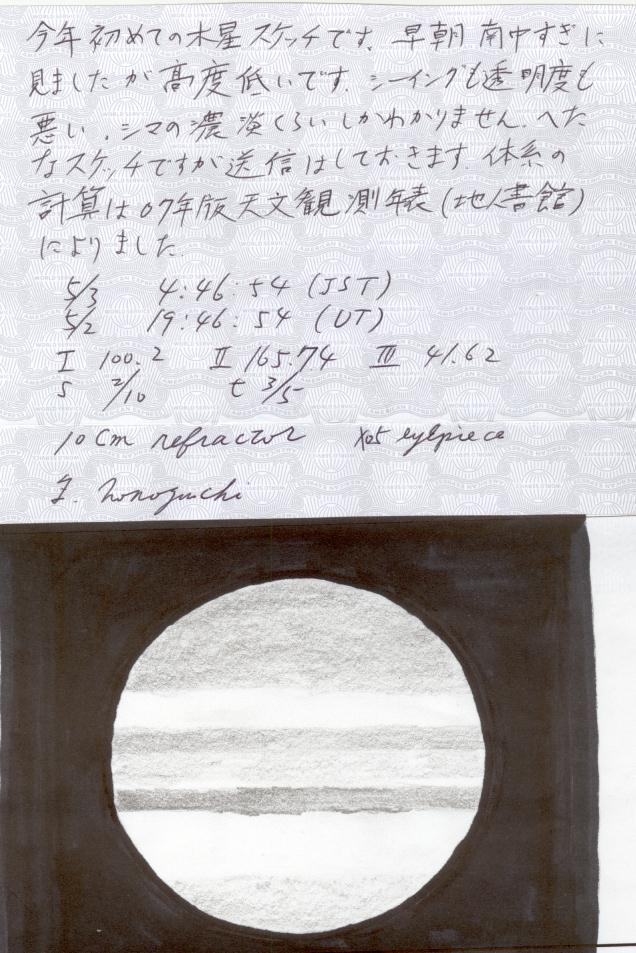 今年初めての木星スケッチです。早朝南中すぎに
見ましたが高度低いです。シーイングも透明度も
悪い、シマの濃淡くらいしかわかりません。へた
なスケッチですが送信はしておきます。体系の
計算は07年版天文観測年表(地人書館)
によりました。
5/3 4:46:54 (JST)
5/2 19:46:54 (UT)
I 100.2 II 165.74 III 41.62
S 2/10 t 3/5
10cm refractor eyepiece